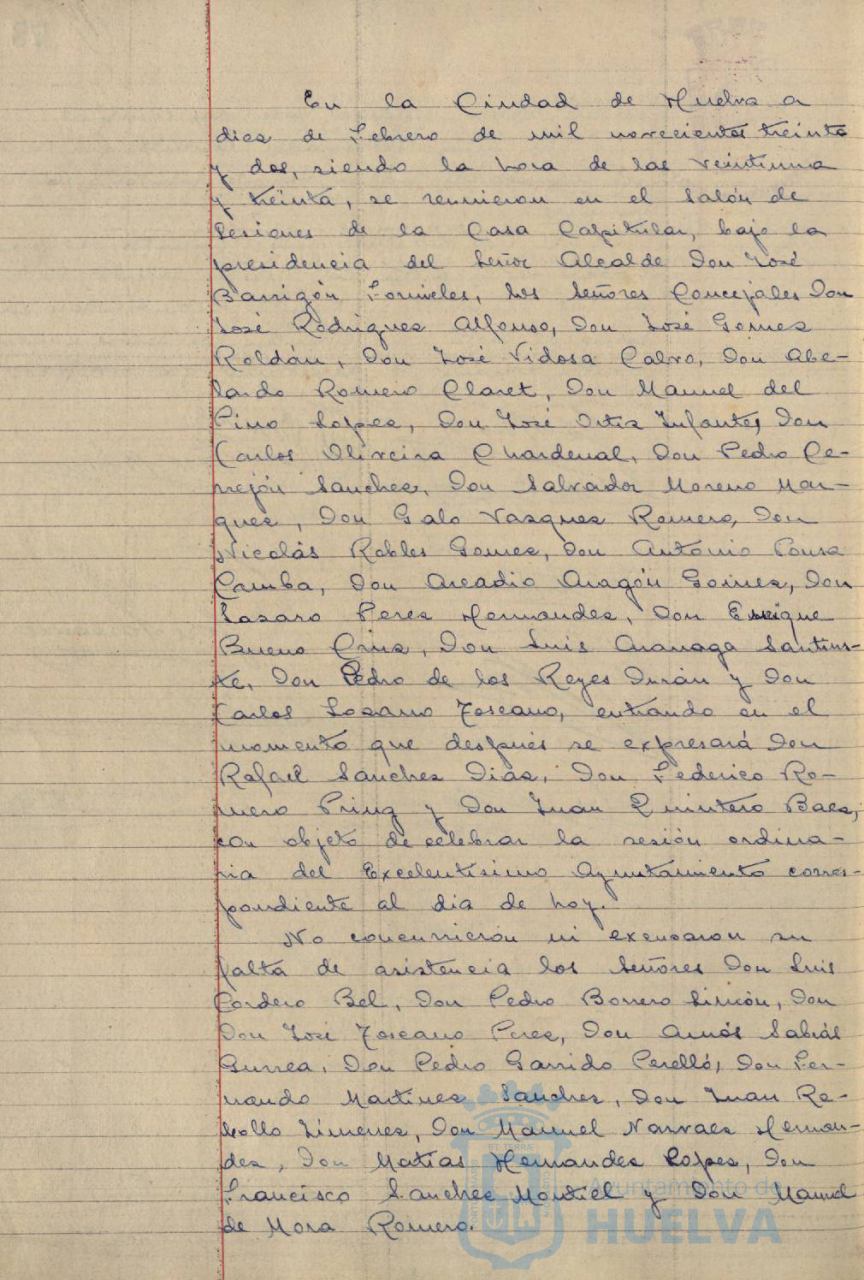 En la Ciudad de Huelva a
diez de Febrero de mil novecientos treinta
y dos, siendo la hora de las veintiuna
y treinta, se reunieron en el Salón de
Sesiones de la Casa Capitular, bajo la
presidencia del Señor Alcalde Don José
Barrigón Fornieles, los Señores Concejales Don
José Rodriguez Alfonso, Don José Gomez
Roldán, Don José Vidosa Calvo, Don Abe-
lardo Romero Claret, Don Manuel del
Pino Lopez, Don José Ortiz Infantes, Don
Carlos Oliveira Chardenal, Don Pedro Ce-
rrejón Sanchez, Don Salvador Moreno Mar-
quez, Don Galo Vazquez Romero, Don
Nicolás Robles Gomez, Don António Pousa
Camba, Don Arcadio Aragón Gomez, Don
Lazaro Perez Hernandez, Don Enrique
Bueno Cruz, Don Luis Aranaga Santius-
te, Don Pedro de los Reyes Durán y Don
Carlos Lozano Toscano, entrando en el
momento que después se expresará Don
Rafael Sanchez Diaz, Don Federico Ro-
mero Pring y Don Juan Quintero Baez,
con objeto de celebrar la sesión ordina-
ria del Excelentísimo Ayuntamiento corres-
pondiente al dia de hoy.
No concurrieron ni excusaron su
falta de asistencia los Señores Don Luis
Cordero Bel, Don Pedro Borrero Limón, Don
Don José Toscano Perez, Don Amós Sabrás
Gurrea, Don Pedro Garrido Perelló, Don Fer-
nando Martinez Sanchez, Don Juan Re-
bollo Jimenez, Don Manuel Narvaez Hernan-
dez, Don Matías Hernandez Lopez, Don
Francisco Sanchez Montiel y Don Manuel
de Mora Romero.
Ayuntamiento de
HUELVA